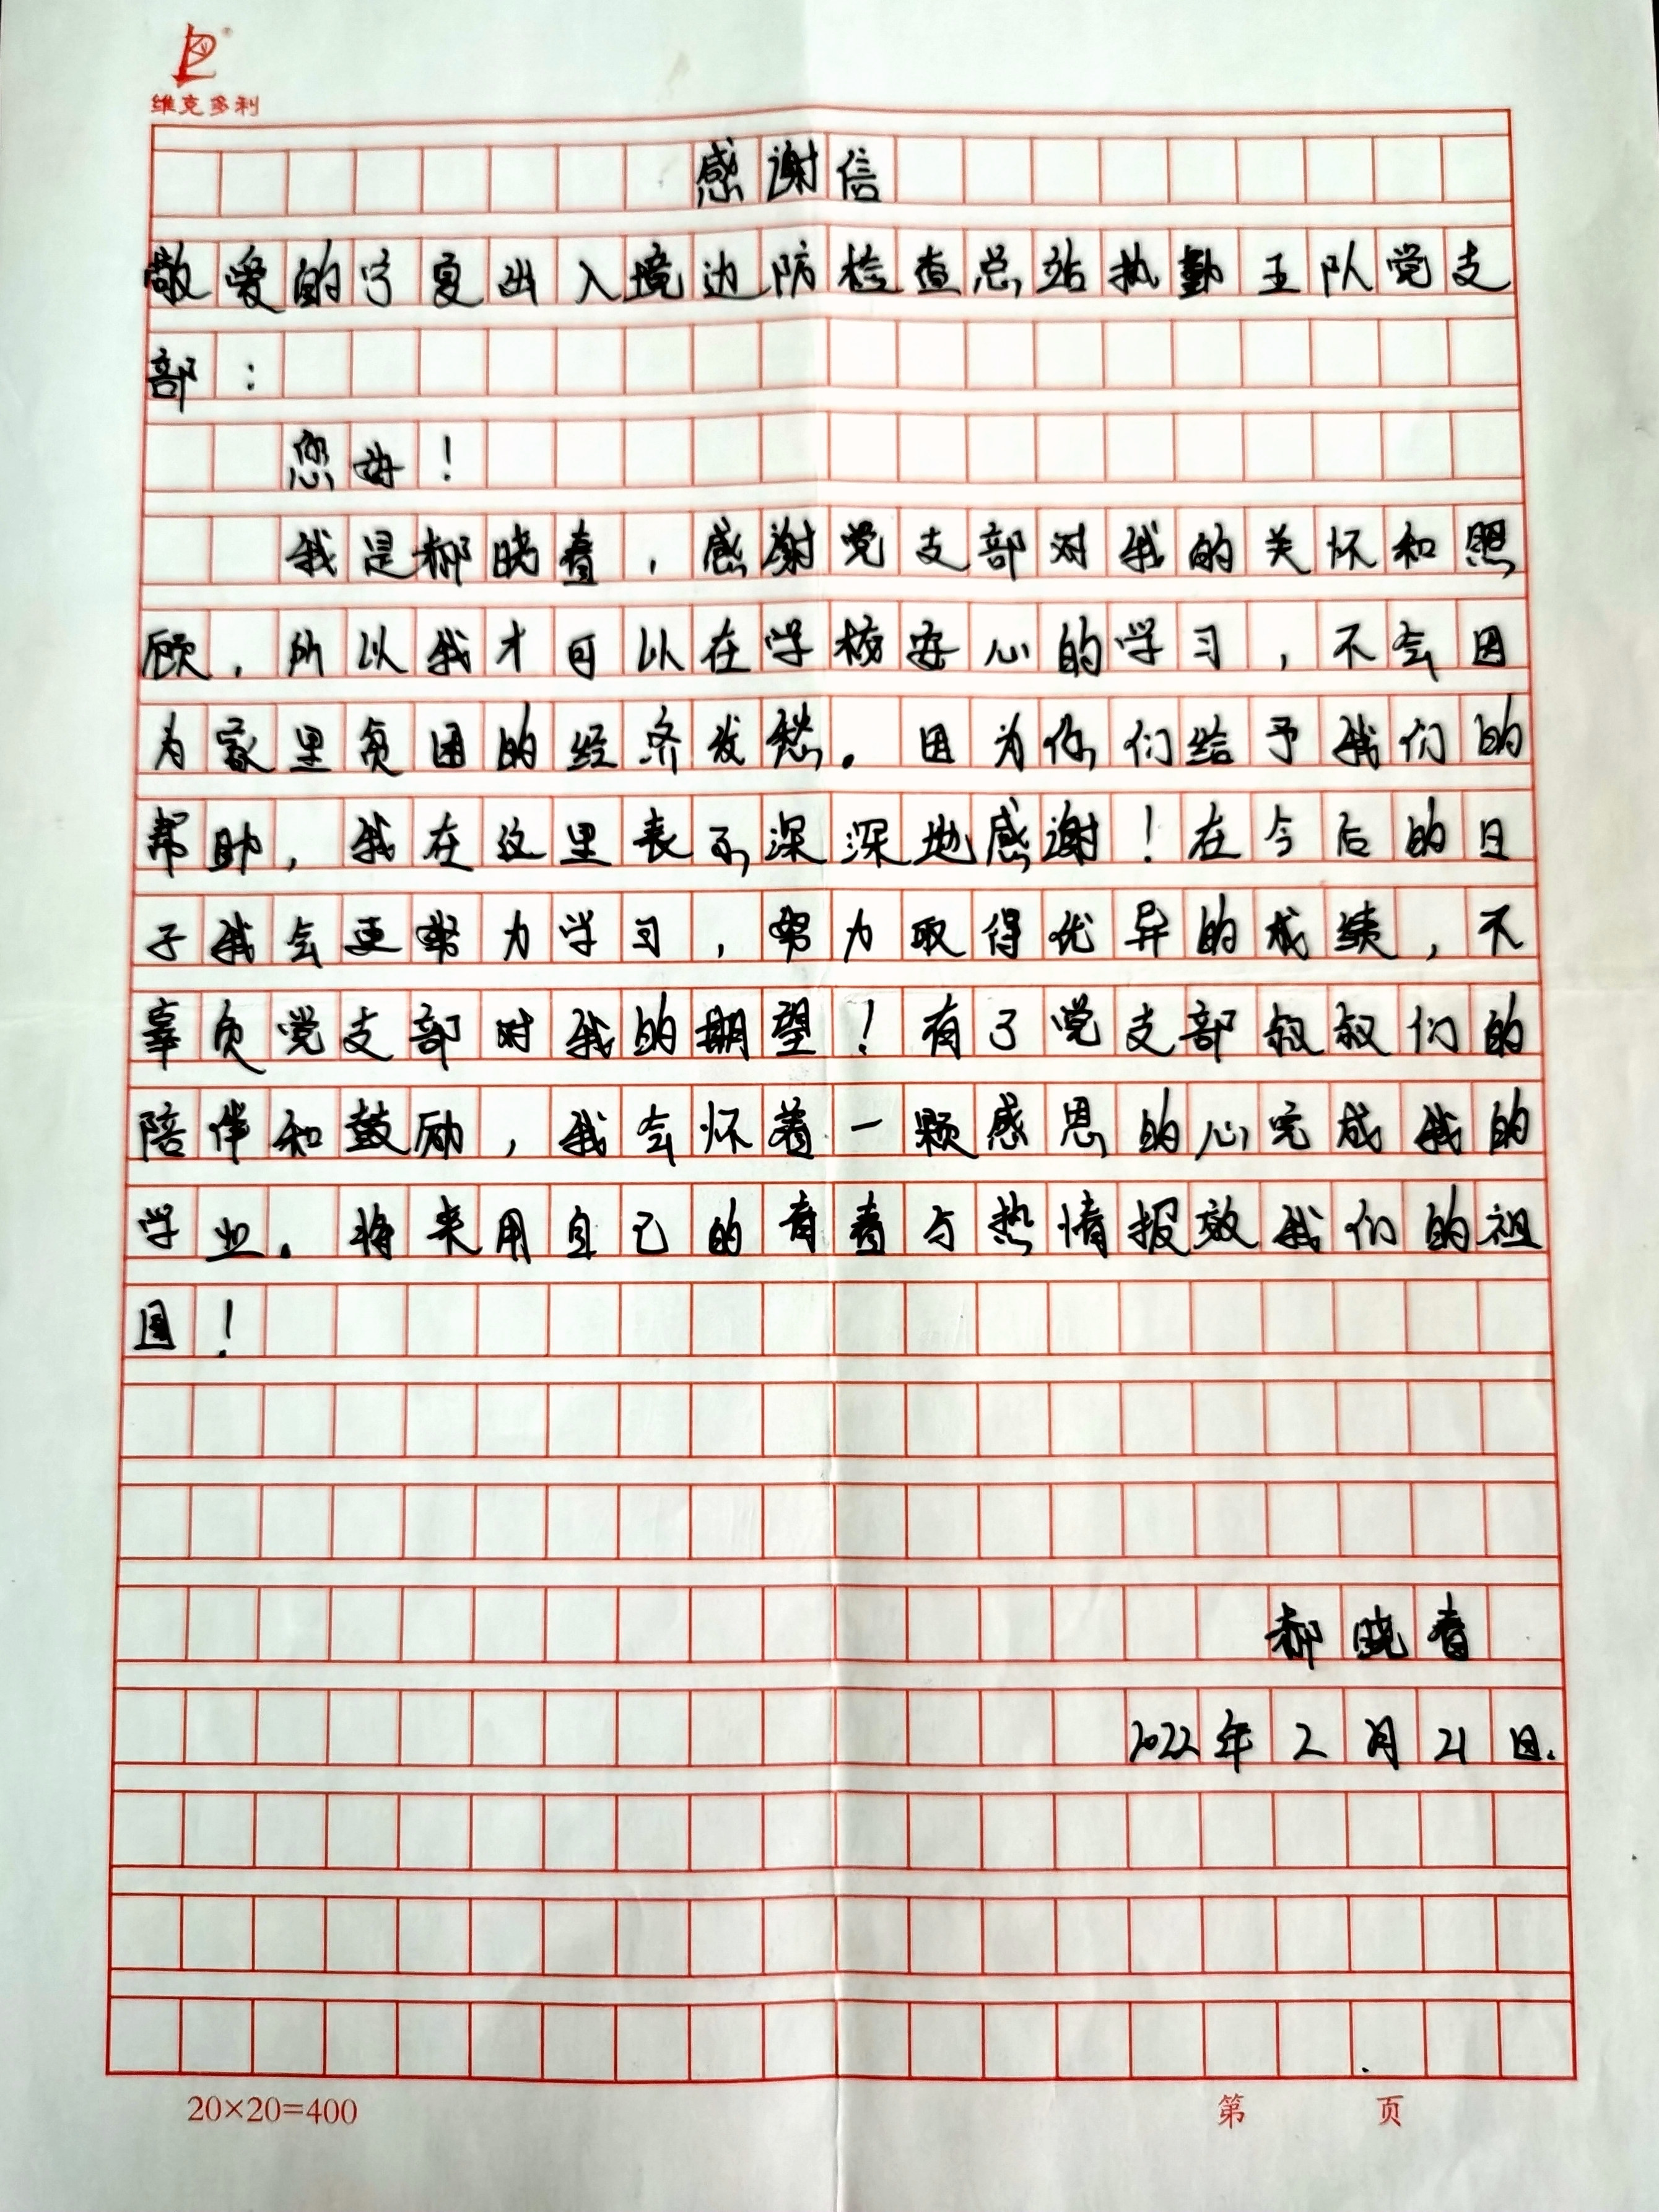 维克多利
感谢信
敬爱的宁夏出入境边防检查总站执勤五队党支
部：
您好！
我是郝晓春，感谢党支部对我的关怀和照
顾，所以我才可以在学校安心的学习，不会因
为家里贫困的经济发愁。因为你们给予我们的
帮助，我在这里表示深深地感谢！在今后的日
子我会更努力学习，努力取得优异的成绩，不
辜负党支部对我的期望！有了党支部叔叔们的
陪伴和鼓励，我会怀着一颗感恩的心完成我的
学业。将来用自己的青春与热情报效我们的祖
国！
郝晓春
2022年2月21日.
20×20=400 第 页